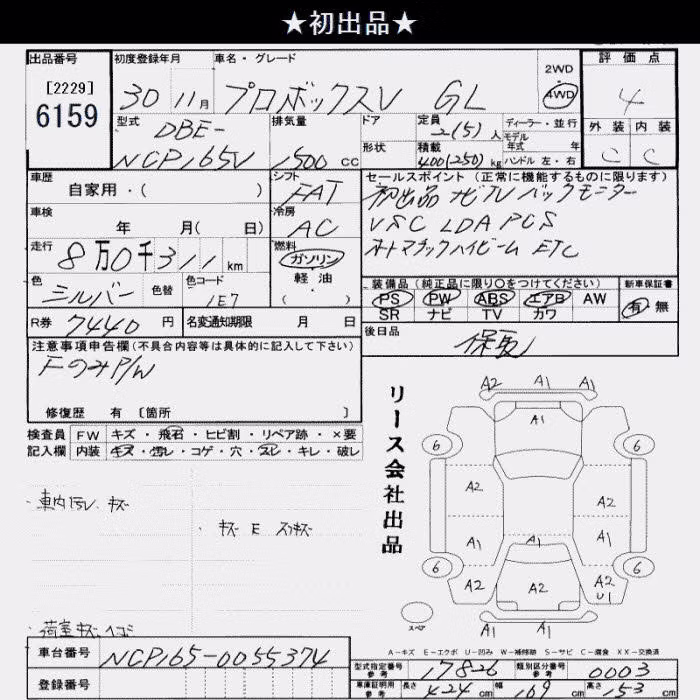 ★初出品★
出品番号 初度登録年月 車名・グレード 2WD 評価点
[2229] 6159 30 11月 プロボックスV GL 4WD 4
型式 DBE- 排気量 ドア 定員 2(5)人 ディーラー・並行 外装 内装
モデル年式 年
NCP165V 1500cc 形状 積載 400(250)kg ハンドル 左・右 C C
車歴 シフト セールスポイント(正常に機能するものに限ります)
自家用・( ) FAT 初出品 ナビTV バックモニター
車検 冷房 VSC LDA PCS
年 月( 日) AC オートマチックハイビーム ETC
走行 8万0千311km 燃料 ガソリン
軽油
( )
色 シルバー 色替 色コード 1E7
装備品(純正品に限り○をつけてください) 新車保証書
PS PW ABS エアB AW 有・無
SR ナビ TV カワ
R券 7440円 名変通知期限 月 日 後日品
保取
注意事項申告欄(不具合内容等は具体的に記入して下さい)
FのみP/W
修復歴 有〔箇所 〕
検査員 FW キズ・飛石・ヒビ割・リペア跡・×要
記入欄 内装 キズ・汚レ・コゲ・穴・スレ・キレ・破レ
・車内汚レ キズ
・キズ E スリキズ
・荷室キズ、ヘコミ
リース会社出品
A2 A1 A1
A1
6 6
A2 A2
A1 A1 A1
6 6
A2 A2 A2
U1
スペア
A1 A1
A-キズ E-エクボ U-凹み W-補修跡 S-サビ C-腐食 XX-交換済
車台番号 NCP165-0055374
型式指定番号 参考 17826 類別区分番号 参考 0003
登録番号
車庫証明用 参考 長さ 424cm 幅 169cm 高さ 153cm